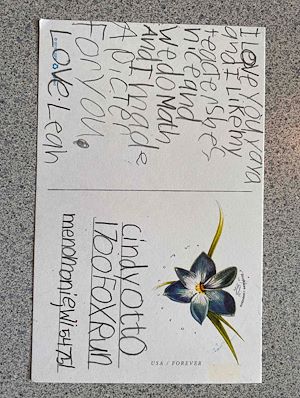 I Love you yana
and I like my
teacher she's
nice and
we do math
and I made
A pic
For You.
Love. Leah
cindy otto
1700 Fox Run
menomonie, Wi 54751
USA / FOREVER